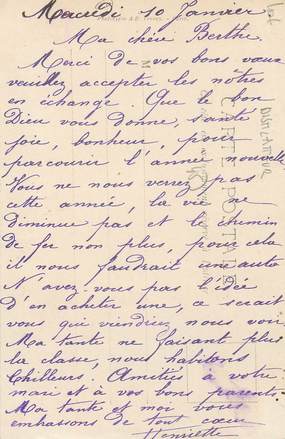 Mercredi 10 Janvier
Ma chère Berthe.
Merci de vos bons vœux
veuillez accepter les nôtres
en échange. Que le bon
Dieu vous donne, santé
joie, bonheur, pour
parcourir l'année nouvelle
Vous ne nous verrez pas
cette année, la vie ne
diminue pas et le chemin
de fer non plus, pour cela
il nous faudrait une auto
N'avez-vous pas l'idée
d'en acheter une, ce serait
vous qui viendriez nous voir.
Ma tante ne faisant plus
la classe, nous habitons
Chilleurs. Amitiés à votre
mari et à vos bons parents.
Ma tante et moi vous
embrassons de tout cœur
Henriette
CARTE POSTALE